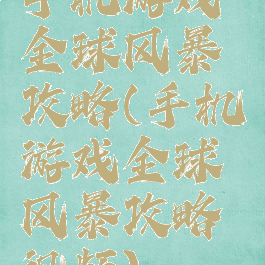 手机游戏
全球风暴
攻略(手机
游戏全球
风暴攻略
视频)